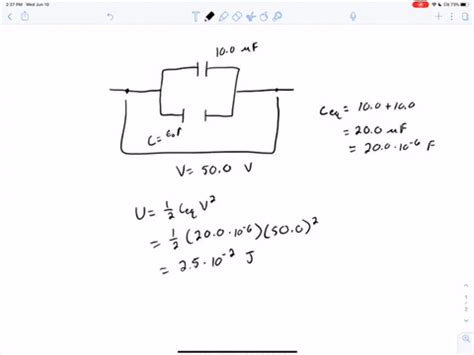 2:37 PM Wed Jun 10
73%
10.0 μF
C=
V= 50.0 V
Ceq = 10.0 + 10.0
= 20.0 μF
= 20.0·10^-6 F
U = 1/2 Ceq V^2
= 1/2 (20.0·10^-6)(50.0)^2
= 2.5·10^-2 J